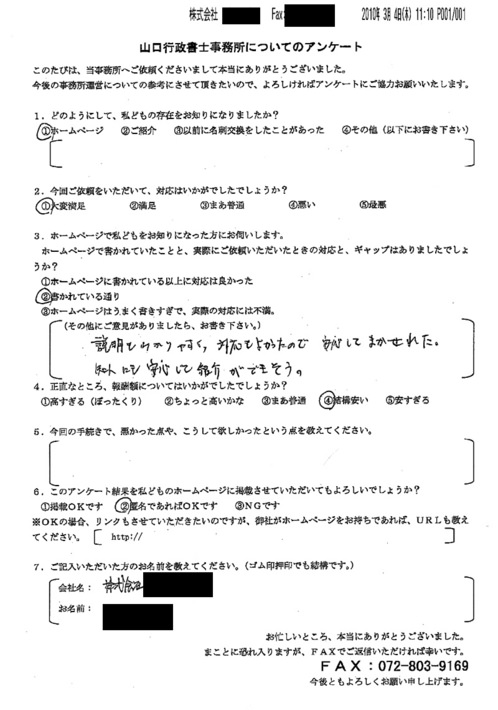 株式会社 Fax: 2010年 3月 4日(木) 11:10 P001/001
山口行政書士事務所についてのアンケート
このたびは、当事務所へご依頼くださいまして本当にありがとうございました。
今後の事務所運営についての参考にさせて頂きたいので、よろしければアンケートにご協力お願いいたします。
1．どのようにして、私どもの存在をお知りになりましたか？
①ホームページ ②ご紹介 ③以前に名刺交換をしたことがあった ④その他（以下にお書き下さい）
2．今回ご依頼をいただいて、対応はいかがでしたでしょうか？
①大変満足 ②満足 ③まあ普通 ④悪い ⑤最悪
3．ホームページで私どもをお知りになった方にお伺いします。
ホームページで書かれていたことと、実際にご依頼いただいたときの対応と、ギャップはありましたでしょ
うか？
①ホームページに書かれている以上に対応は良かった
②書かれている通り
③ホームページはうまく書きすぎで、実際の対応には不満。
（その他にご意見がありましたら、お書き下さい。）
説明もわかりやすく、対応もよかったので 安心して まかせれた。
知人にも 安心して 紹介 ができそう。
4．正直なところ、報酬額についてはいかがでしたでしょうか？
①高すぎる（ぼったくり） ②ちょっと高いかな ③まあ普通 ④結構安い ⑤安すぎる
5．今回の手続きで、悪かった点や、こうして欲しかったという点を教えてください。
6．このアンケート結果を私どものホームページに掲載させていただいてもよろしいでしょうか？
①掲載OKです ②匿名であればOKです ③NGです
※OKの場合、リンクもさせていただきたいのですが、御社がホームページをお持ちであれば、URLも教え
てください。 [ http:// ]
7．ご記入いただいた方のお名前を教えてください。（ゴム印押印でも結構です。）
会社名： 株式会社
お名前：
お忙しいところ、本当にありがとうございました。
まことに恐れ入りますが、FAXでご返信いただければ幸いです。
FAX：072-803-9169
今後ともよろしくお願い申し上げます。